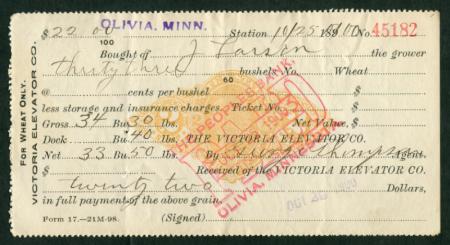 OLIVIA, MINN.
$ 22 00/100 Station 10/25 1900 No. 45182
Bought of J Larson the grower
thirty three 50/60 bushels No. Wheat
@ cents per bushel $
less storage and insurance charges. Ticket No. $
Gross 34 Bu. 30 lbs. Net Value, $
Dock Bu. 40 lbs. THE VICTORIA ELEVATOR CO.
Net 33 Bu. 50 lbs. By Thompson Agent.
$ Received of the VICTORIA ELEVATOR CO.
twenty two Dollars,
in full payment of the above grain.
Form 17.—21M-98. (Signed)
FOR WHEAT ONLY.
VICTORIA ELEVATOR CO.
PEOPLES BANK,
OLIVIA, MINN.
OCT 26 1900